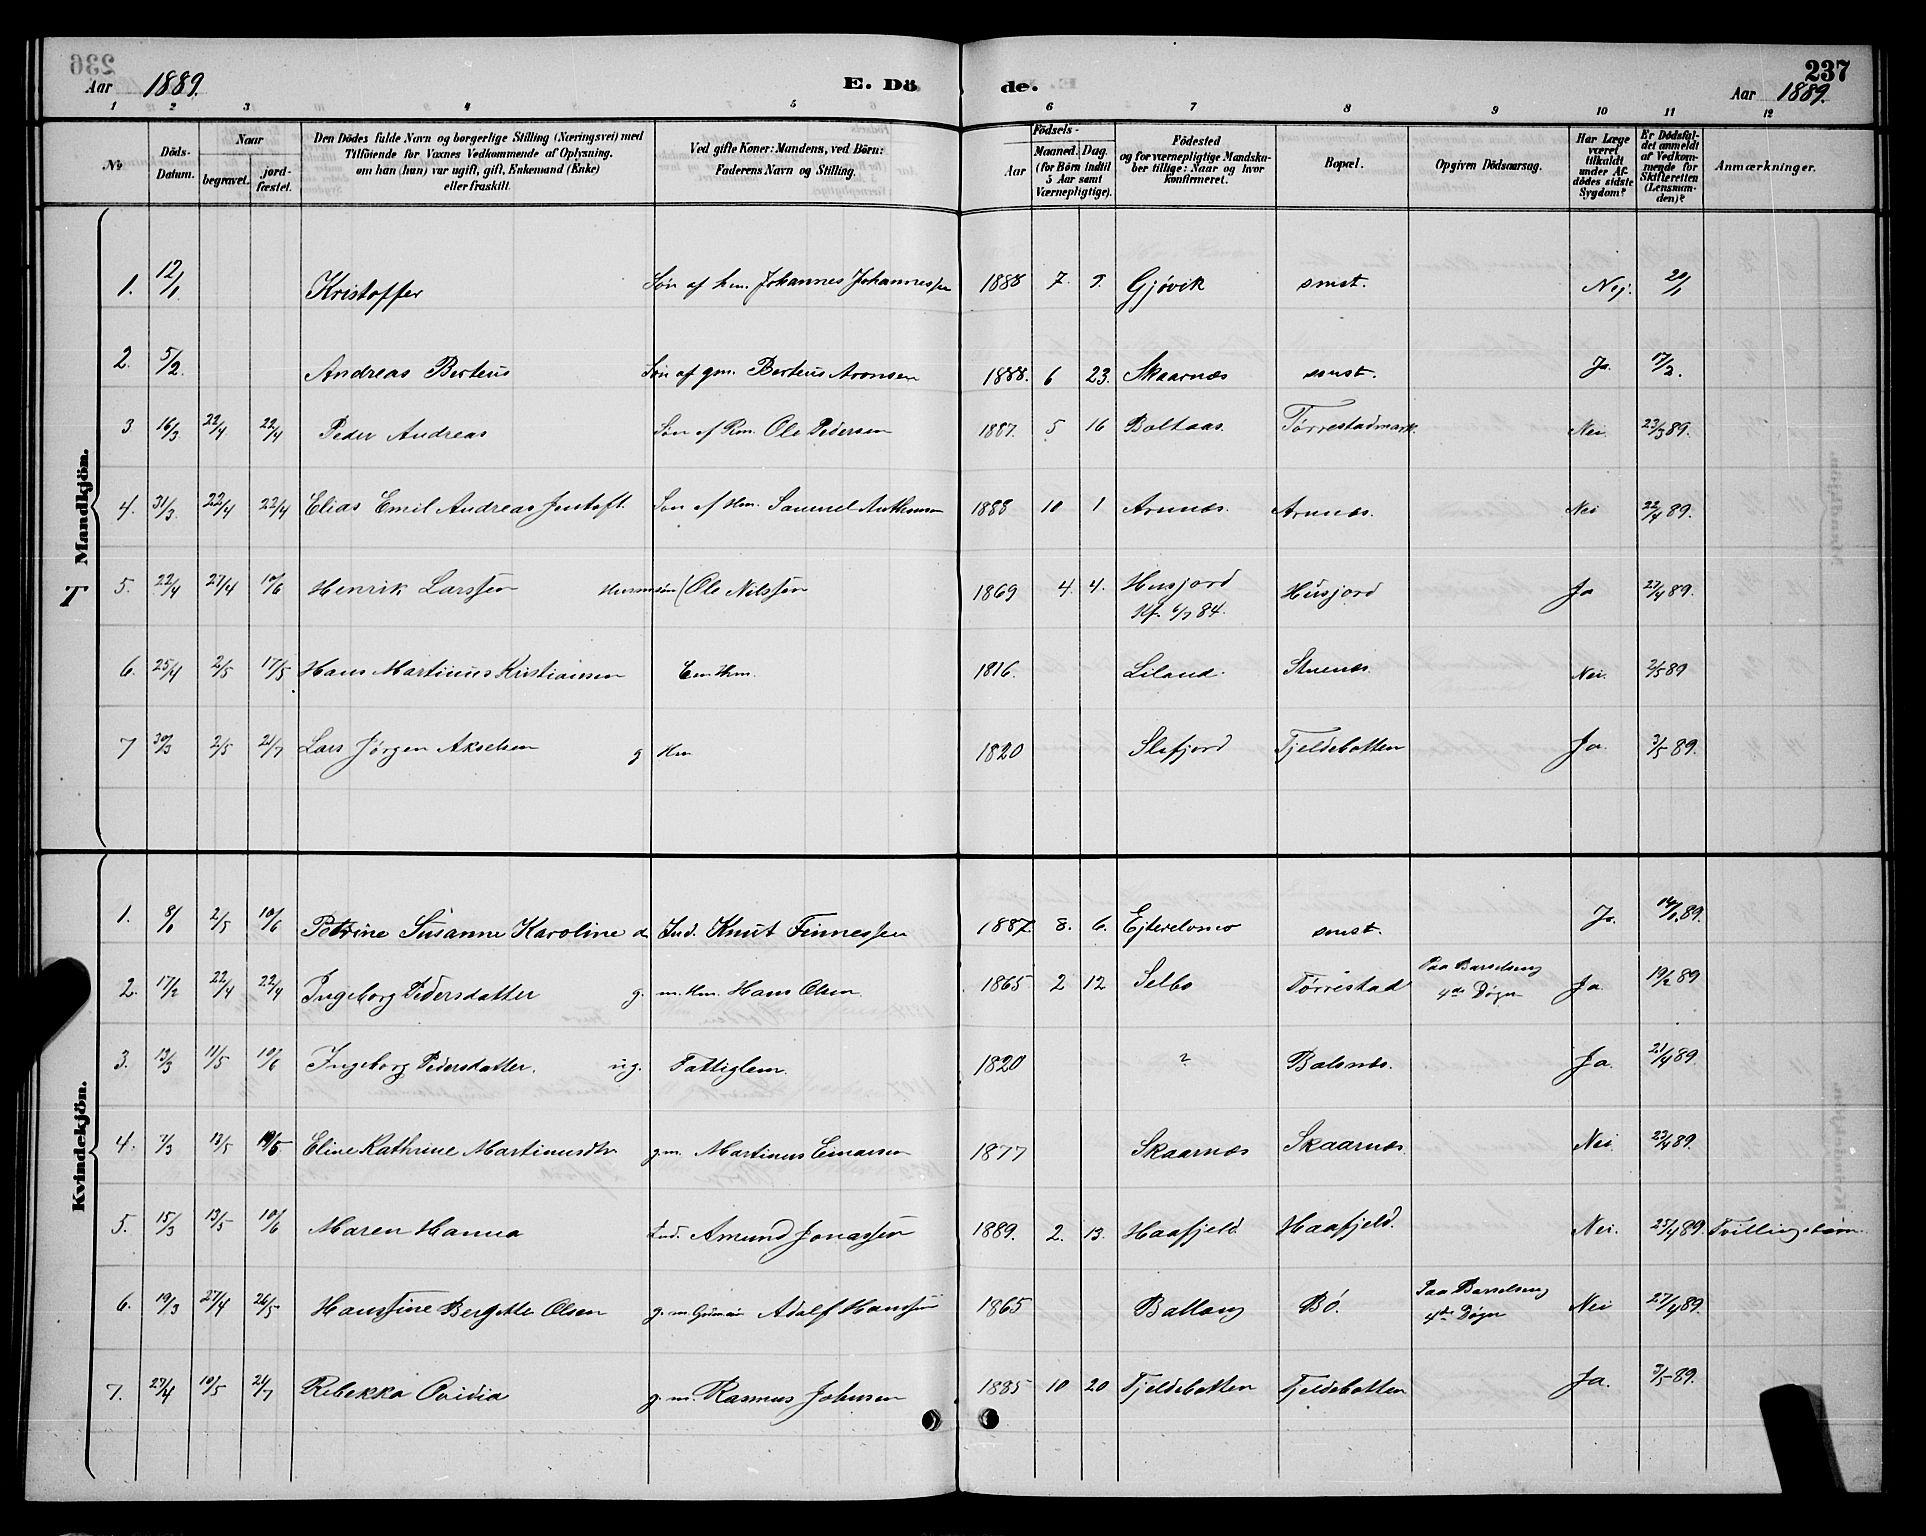 236
Aar 1889.
E. Dö de.
237
Aar 1889.
1 2 3 4 5 6 7 8 9 10 11 12
No
Döds-Datum.
Naar
begravet.
jordfæstet.
Den Dödes fulde Navn og borgerlige Stilling (Næringsvei) med
Tilföiende for Voxnes Vedkommende af Oplysning.
om han (hun) var ugift, gift, Enkemand (Enke)
eller fraskilt.
Ved gifte Koner: Mandens, ved Börn:
Faderens Navn og Stilling.
Födsels-
Aar
Maaned. Dag.
(for Börn indtil
5 Aar samt
Værnepligtige).
Födested
og for værnepligtige Mandska-
ber tillige: Naar og hvor
konfirmeret.
Bopæl.
Opgiven Dödsaarsag.
Har Læge
været
tilkaldt
under Af-
dödes sidste
Sygdom?
Er Dödsfal-
det anmeldt
af Vedkom-
mende for
Skifteretten
(Lensman-
den)?
Anmærkninger.
Mandkjön.
1. 12/1 Kristoffer Søn af hm. Johannes Johannessen 1888 7. 9. Gjøvik smst. Nej. 20/1
2. 5/2 Andreas Berteus Søn af gm. Berteus Aronsen 1888. 6 23. Skaarnæs smst. Ja. 17/2.
3 16/3 22/4 22/4 Peder Andreas Søn af Ole Pedersen 1887. 5 16 Boltaas Tørrestadmark. Nei. 23/3 89.
4. 31/3 22/4 22/4 Elias Emil Andreas Søn af Hm. Samuel Anthonsen 1888 10 1 Arnnæs. Arnnæs. Nei 22/4 89.
T
5. 22/4 27/4 10/6 Henrik Larssen Husmsøn (Ole Nilssen 1869 4. 4. Husjord Husjord Ja 23/4 89.
Kf. 6/7 84.
6. 25/4 2/5 17/5 Hans Martinus Kristiansen Em Hm. 1816. Liland. Nei. 2/5 89
7 30/3 2/5 21/7 Lars Jørgen Akselsen g Hm 1820 Slefjord Tjeldebotten Ja. 3/5 89.
Kvindekjön.
1. 8/1 2/5 10/6 Petrine Susanne Karoline d. Ind. Knut Finnessen 1887 8. 6. smst. Ja. 14/1 89.
2. 17/2 22/4 22/4 Ingeborg Pedersdatter g. m. Hm. Hans Olsen 1865 2 12 Selbo Tørrestad Paa Barselseng Ja 19/2 89
4de Døgn
3. 13/3 11/5 10/6 Ingeborg Pedersdatter. ug. Fattiglem. 1820 ? Balsnes. Ja. 21/4 89.
4. 7/3 13/5 19/5 Eline Kathrine Martinusdtr g. m. Martinus Einarsen 1877 Skaarnæs Skaarnæs. Nei 23/4 89.
5. 15/3 13/5 10/6 Maren Hanna Ind. Amund Jonassen 1889. 2. 13. Haafjeld. Haafjeld. Nei. 25/4 89. Tvillingbarn
6. 19/3 27/4 26/5 Hanstine Bergette Olsen g. m. Adolf Hanssen 1865 Ballang Bö. Paa Barselseng Nei 27/4 89.
4de Døgn
7. 27/4 10/5 21/7 Rebekka Ovidia g. m. Rasmus Johnsen 1885 10 20 Tjeldebotten Tjeldebotten Ja. 3/5 89.